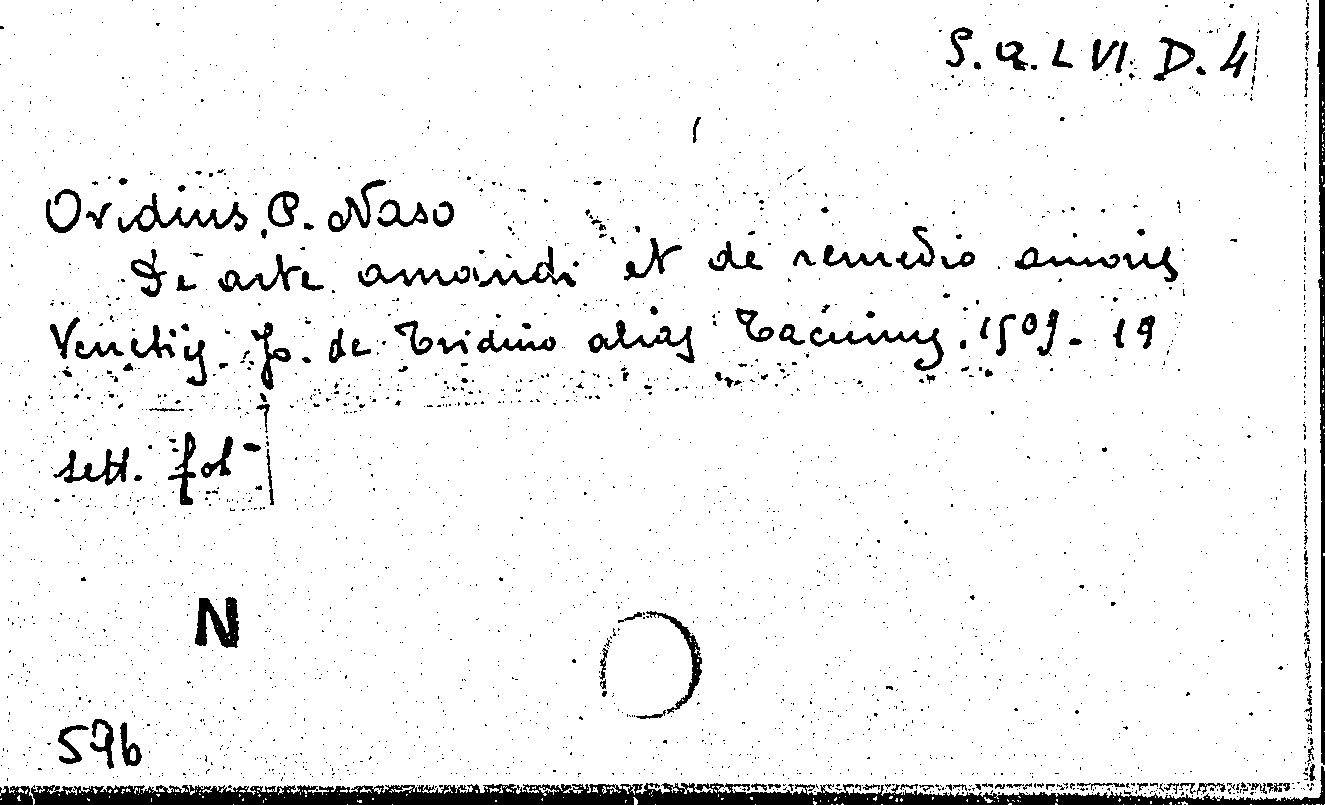 S.Q. L VI. D. 4
Ovidius, P. Naso
De arte amandi et de remedio amoris
Venetijs. Jo. de Tridino alias Tacuinus. 1509. 19
sett. fol-
N
576